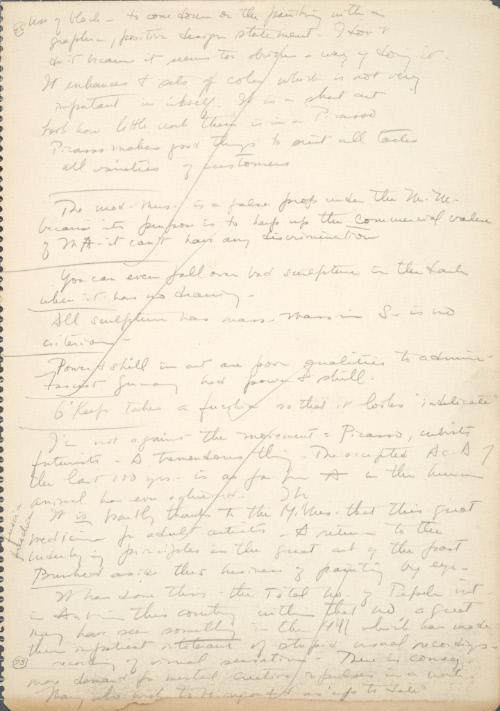 use of black - to come down on the painting with a
graphic, positive design statement. I don't
do it because it seems too obvious a way of doing it.
It enhances & sets of color which is not very
important in itself. It is a short cut
look how little work there is in a Picasso
Picasso makes good things to suit all tastes
all varieties of customers
The mod. Mus. is a false prop under the M. M.
because its purpose is to keep up the commercial value
of M A - it can't have any discrimination
You can even fall over bad sculpture in the dark
when it has no drawing -
All sculpture has mass - mass in S - is no
criterion -
Power & skill in art are poor qualities to admire -
Nazist Germany had power & skill.
O'Keefe takes a fuchsia so that it looks "indelicate"
I'm not against the movement = Picasso, cubists
futurists - A tremendous thing - The accepted Ac. A of
the last 100 yrs. is as far from A as the human
animal has ever achieved.
It is partly thanks to the M. Mus. that this great
medicine for adult artists - A return to the
underlying principles in the great art of the past
Brushed aside this business of painting by eye -
It has done this - the total no. of People int.
in Art in this country within that no a great
many have seen something in the which has made
them impatient intolerant of stupid visual recordings -
recording of visual sensation - There is conseq.
more demand for mental creative impulses in a work
Many who wish to be regarded as "up to date"